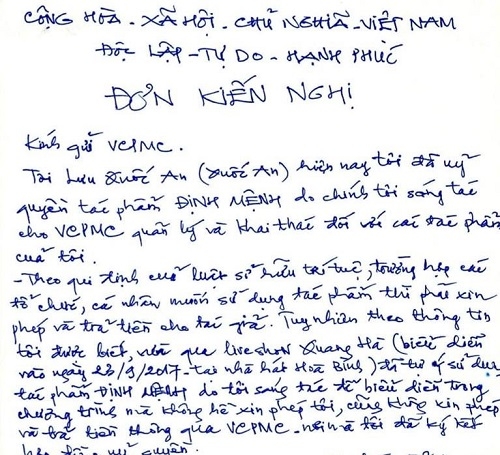 CỘNG HÒA - XÃ HỘI - CHỦ NGHĨA - VIỆT NAM
ĐỘC LẬP - TỰ DO - HẠNH PHÚC
ĐƠN KIẾN NGHỊ
Kính gửi VCPMC.
Tôi Lưu Quốc An (Quốc An) hiện nay tôi đã uỷ
quyền tác phẩm ĐỊNH MỆNH do chính tôi sáng tác
cho VCPMC quản lý và khai thác đối với các tác phẩm
của tôi.
- Theo qui định của luật sở hữu trí tuệ, trường hợp các
tổ chức, cá nhân muốn sử dụng tác phẩm thì phải xin
phép và trả tiền cho tác giả. Tuy nhiên theo thông tin
tôi được biết, vừa qua liveshow Quang Hà (biểu diễn
vào ngày 23/9/2017 - tại nhà hát Hoà Bình) đã tự ý sử dụng
tác phẩm ĐỊNH MỆNH do tôi sáng tác để biểu diễn trong
chương trình mà không hề xin phép tôi, cũng không xin phép
và trả tiền thông qua VCPMC - nơi mà tôi đã ký kết
uỷ quyền.